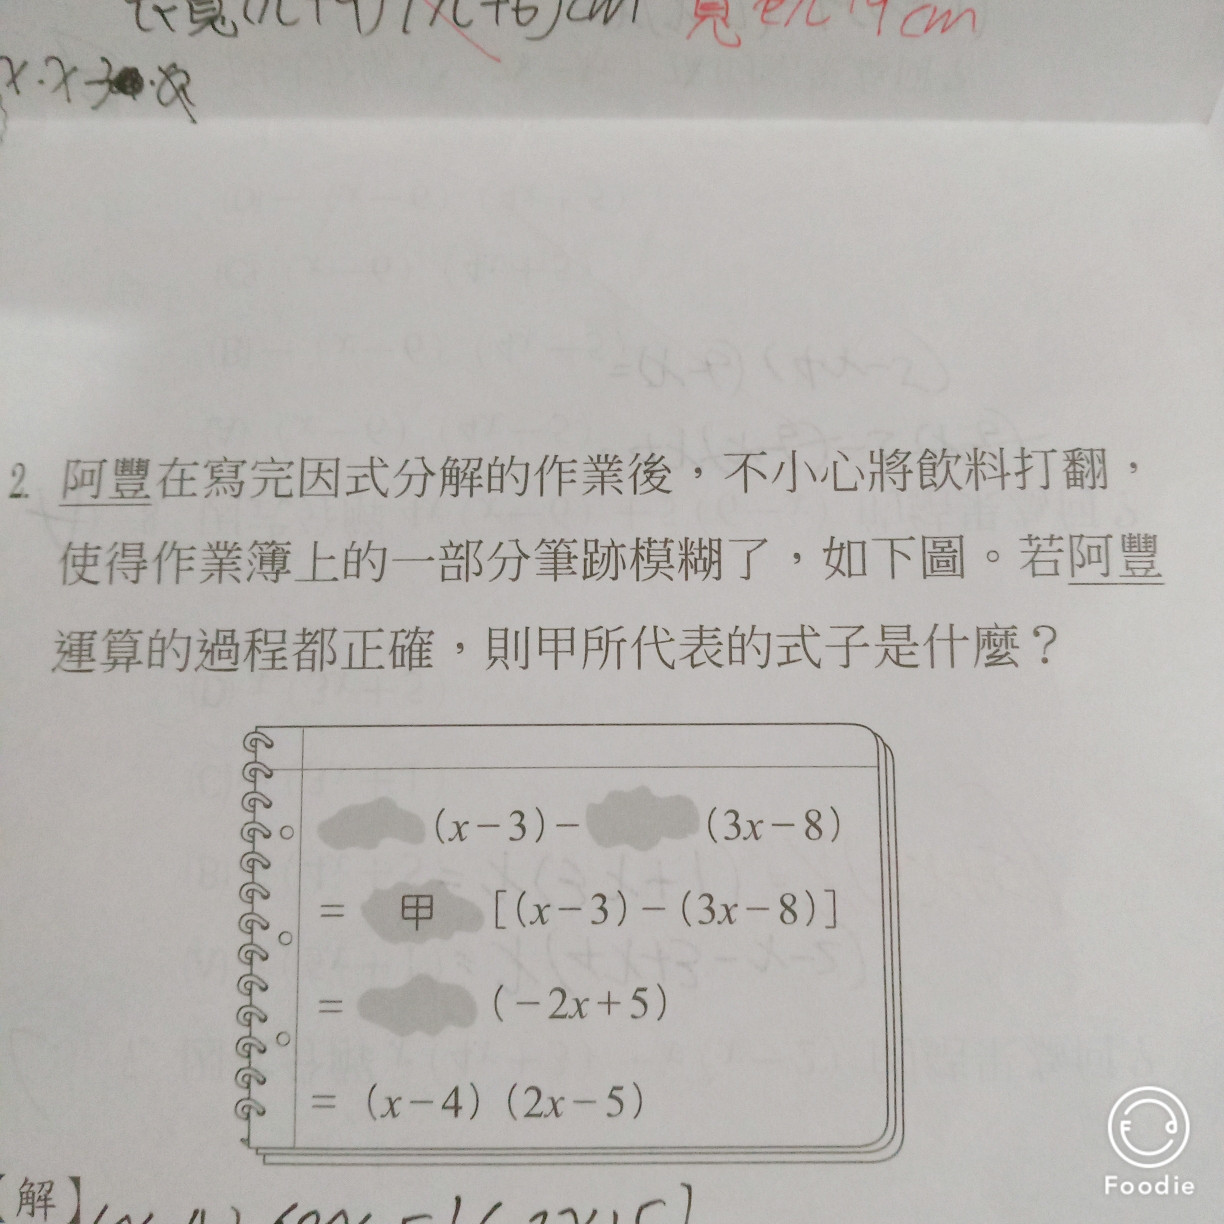 2. 阿豐在寫完因式分解的作業後，不小心將飲料打翻，
使得作業簿上的一部分筆跡模糊了，如下圖。若阿豐
運算的過程都正確，則甲所代表的式子是什麼？
(x－3)－ (3x－8)
＝ 甲 [(x－3)－(3x－8)]
＝ (－2x＋5)
＝ (x－4)(2x－5)
Foodie
【解】